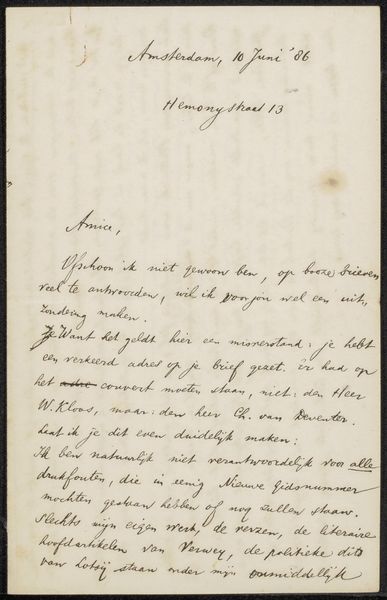 Amsterdam, 10 Juni '86
Hemonystraat 13
Amice,
Ofschoon ik niet gewoon ben, op booze brieven
veel te antwoorden, wil ik voor jou wel een uit-
zondering maken.
Want het geldt hier een misverstand: je hebt
een verkeerd adres op je brief gezet. Er had op
het adre couvert moeten staan, niet: den Heer
W. Kloos, maar: den heer Ch. van Deventer.
Laat ik je dit even duidelijk maken:
Ik ben natuurlijk niet verantwoordelijk voor alle
drukfouten, die in eenig Nieuwe Gidsnummer
mochten gestaan hebben of nog zullen staan.
Slechts mijn eigen werk, de verzen, de literaire
hoofdartikelen van Verwey, de politieke dito
van Lotsij staan onder mijn onmiddelijk